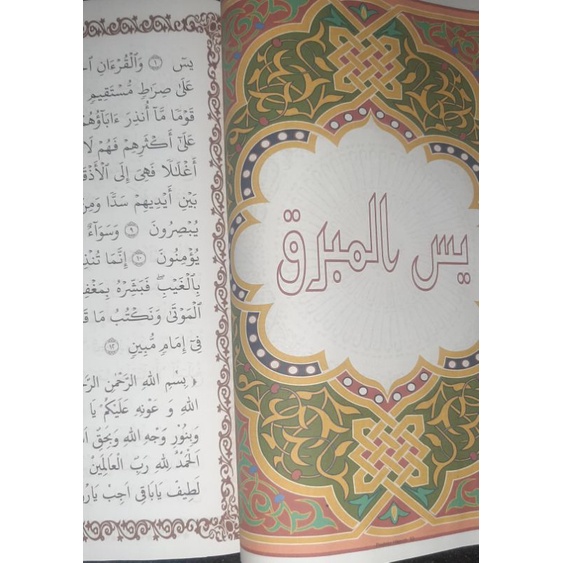 يس المبرق
يسٓ ۝١ وَٱلۡقُرۡءَانِ
عَلَىٰ صِرَٰطٖ مُّسۡتَقِيمٖ
قَوۡمٗا مَّآ أُنذِرَ ءَابَآؤُهُمۡ
عَلَىٰٓ أَكۡثَرِهِمۡ فَهُمۡ لَا
أَغۡلَٰلٗا فَهِيَ إِلَى ٱلۡأَذۡقَ
بَيۡنِ أَيۡدِيهِمۡ سَدّٗا وَمِنۡ
يُبۡصِرُونَ ۝٩ وَسَوَآءٌ
يُؤۡمِنُونَ ۝١٠ إِنَّمَا تُنذِ
بِٱلۡغَيۡبِۖ فَبَشِّرۡهُ بِمَغۡفِ
ٱلۡمَوۡتَىٰ وَنَكۡتُبُ مَا قَ
فِيٓ إِمَامٖ مُّبِينٖ ۝١٢
بِسْمِ اللهِ الرَّحْمٰنِ الرَّحِ
اللهِ وَ عَوْنِهِ عَلَيْكُمْ يَا
وَبِنُوْرِ وَجْهِ اللهِ وَبِحَقِّ
اَلْحَمْدُ لِلهِ رَبِّ الْعَالَمِيْنَ
لَطِيْفُ يَابَاقِى اَجِبْ يَارُ